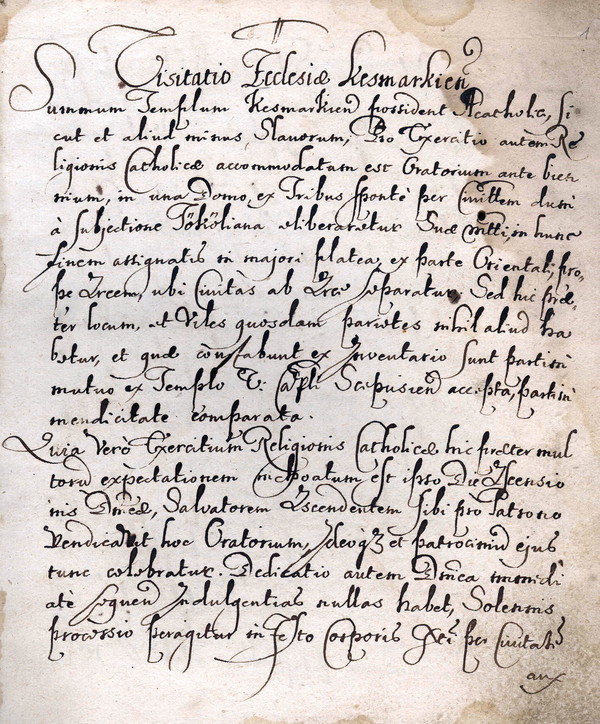 1
Visitatio Ecclesiæ Kesmarkien
Summum Templum Kesmarkien possident Acatholici, si
cut et aliud minus, Slavorum, Pro Exercitio autem Re
ligionis Catholicæ accommodatum est Oratorium ante bien
nium, in una Domo, ex Tribus sponte per Civittem dum
à subjectione Tököliana eliberaretur Suæ mtti, in hunc
finem assignatis in majori platea, ex parte Orientali, pro
pe Arcem, ubi Civitas ab Arce separatur. Sed hic præ
ter locum, et Viles quosdam parietes nihil aliud ha
betur, et quæ constabunt ex Inventario sunt partim
mutuo ex Templo V. Capli Scepusien accepta, partim
mendicitate comparata.
Quia vero Exercitium Religionis Catholicæ hic præter mul
toru expectationem inchoatum est ipso Die Ascensio
nis Dnicæ, Salvatorem Ascendentem sibi pro Patrono
Vendicavit hoc Oratorium, Ideoq3 et patrociniu ejus
tunc celebratur. Dedicatio autem Dnica immedi
atè sequen Indulgentias nullas habet, Solennis
processio peragitur in Festo Corporis Xti per Civitate